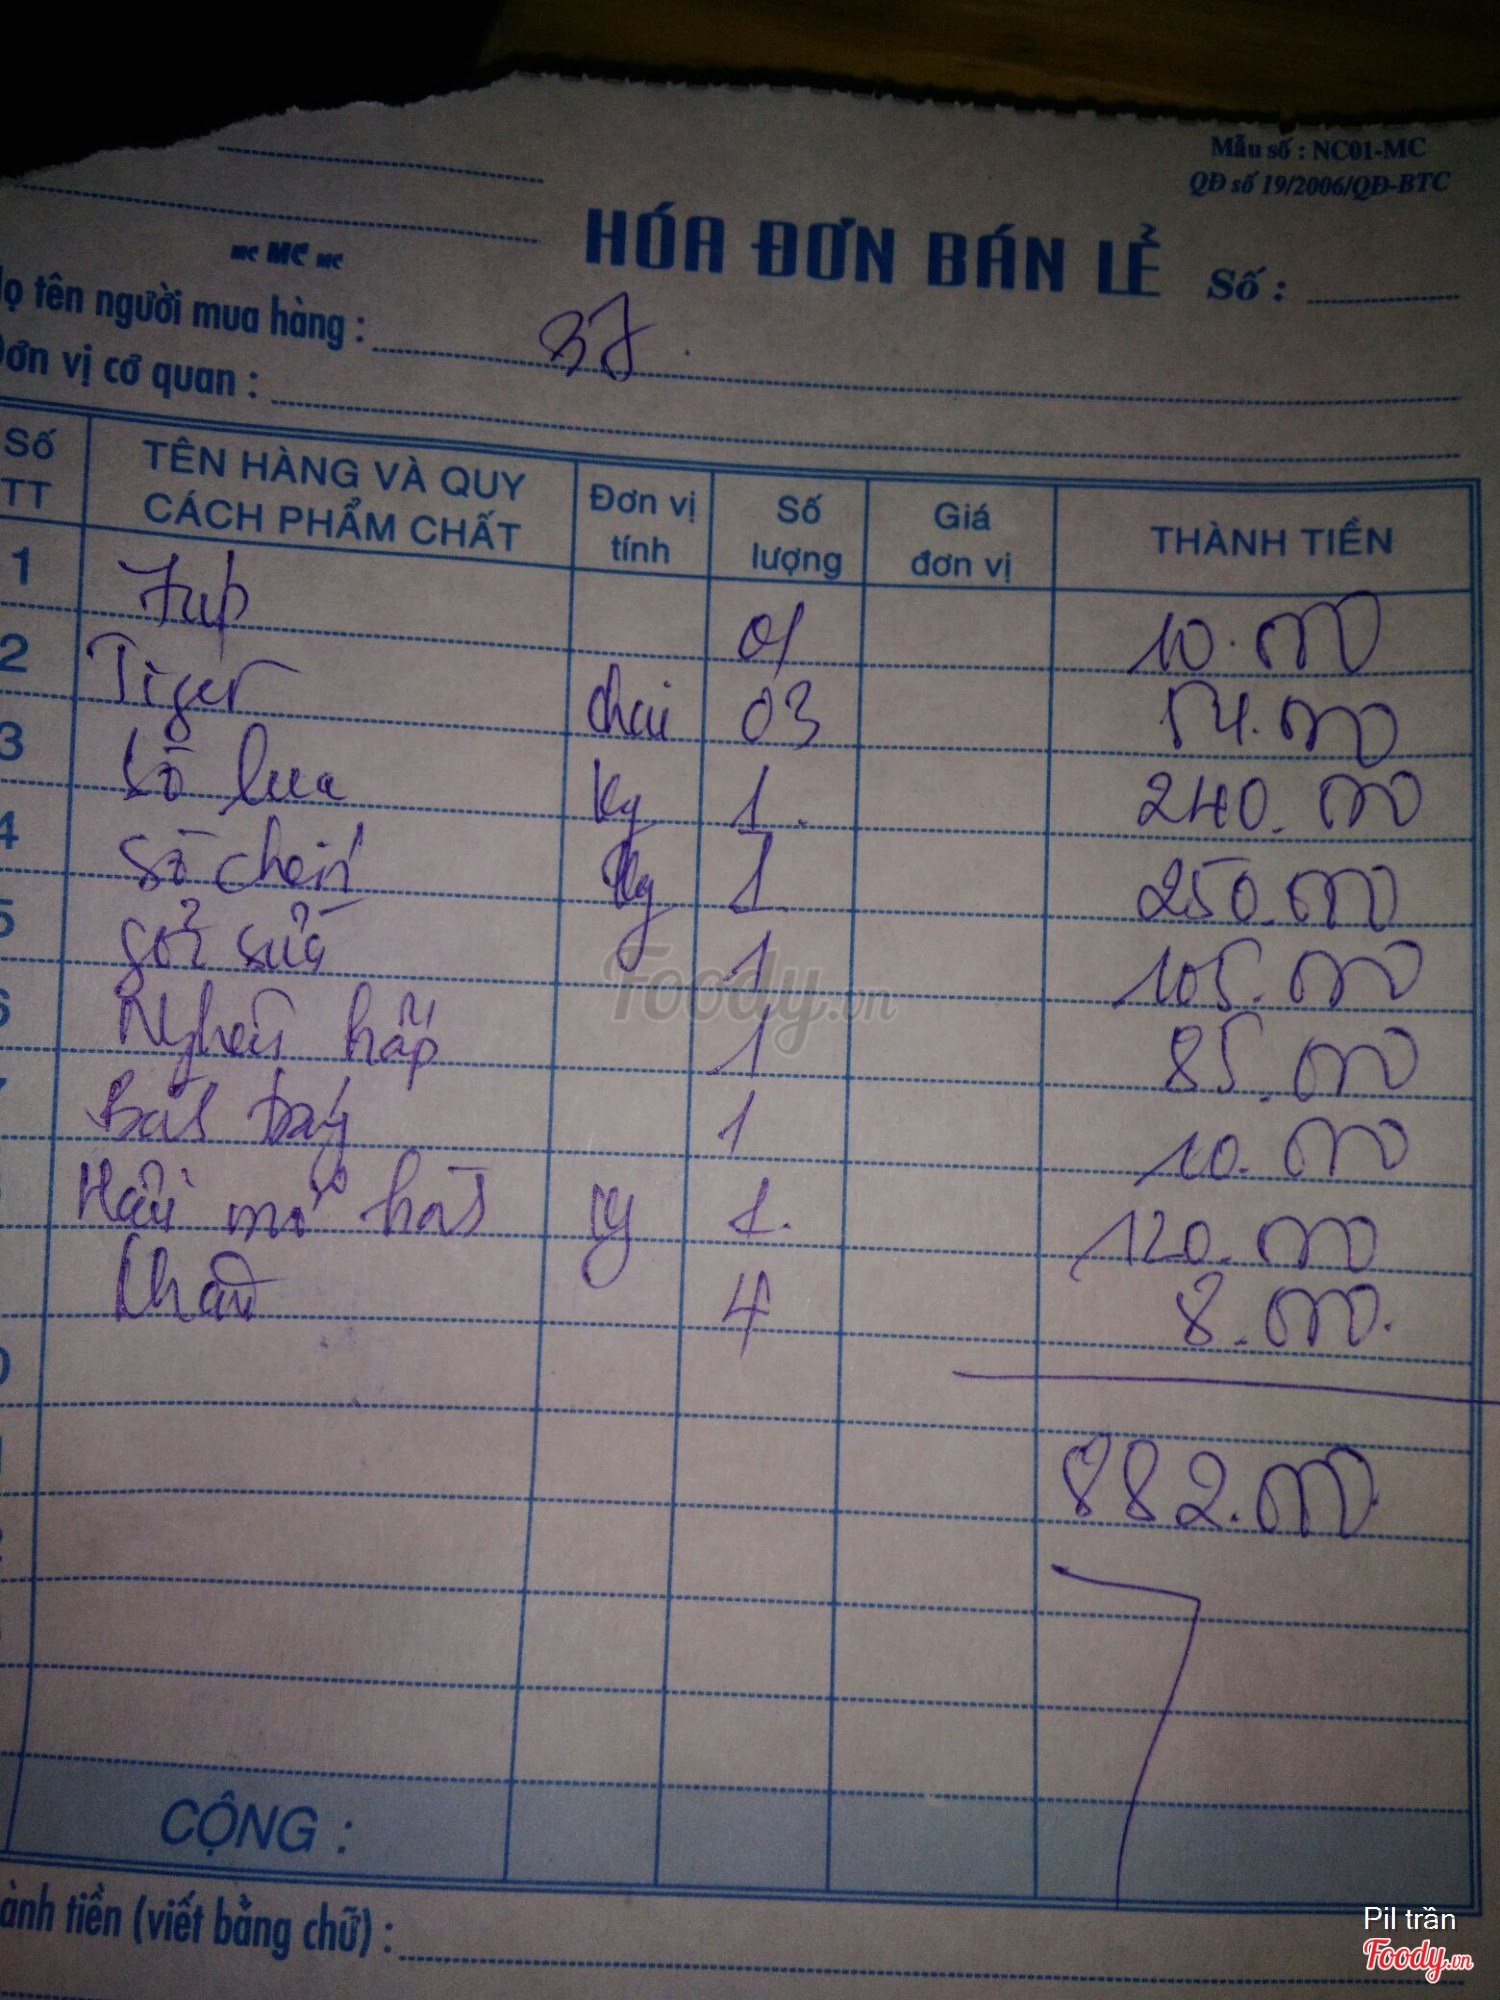 Mẫu số : NC01-MC
QĐ số 19/2006/QĐ-BTC
HÓA ĐƠN BÁN LẺ Số :
MC MC MC
ọ tên người mua hàng : 37
Đơn vị cơ quan :
Số TT TÊN HÀNG VÀ QUY CÁCH PHẨM CHẤT Đơn vị tính Số lượng Giá đơn vị THÀNH TIỀN
1 7up 01 10.000
2 Tiger chai 03 54.000
3 Sò lụa kg 1. 240.000
4 Sò kg 1 250.000
5 gỏi sứa 1 105.000
6 Nghêu hấp 1 85.000
1 10.000
Hàu mỡ hành kg 1. 120.000
khăn 4 8.000.
0
882.000
CỘNG :
ành tiền (viết bằng chữ) :
Foody.vn
Pil trần
Foody.vn